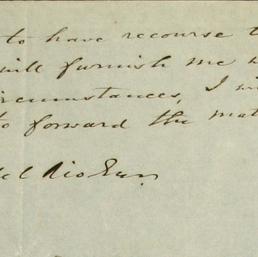 to have recourse t
will furnish me w
ircumstances, I wi
to forward the mat
del Rio Esq.